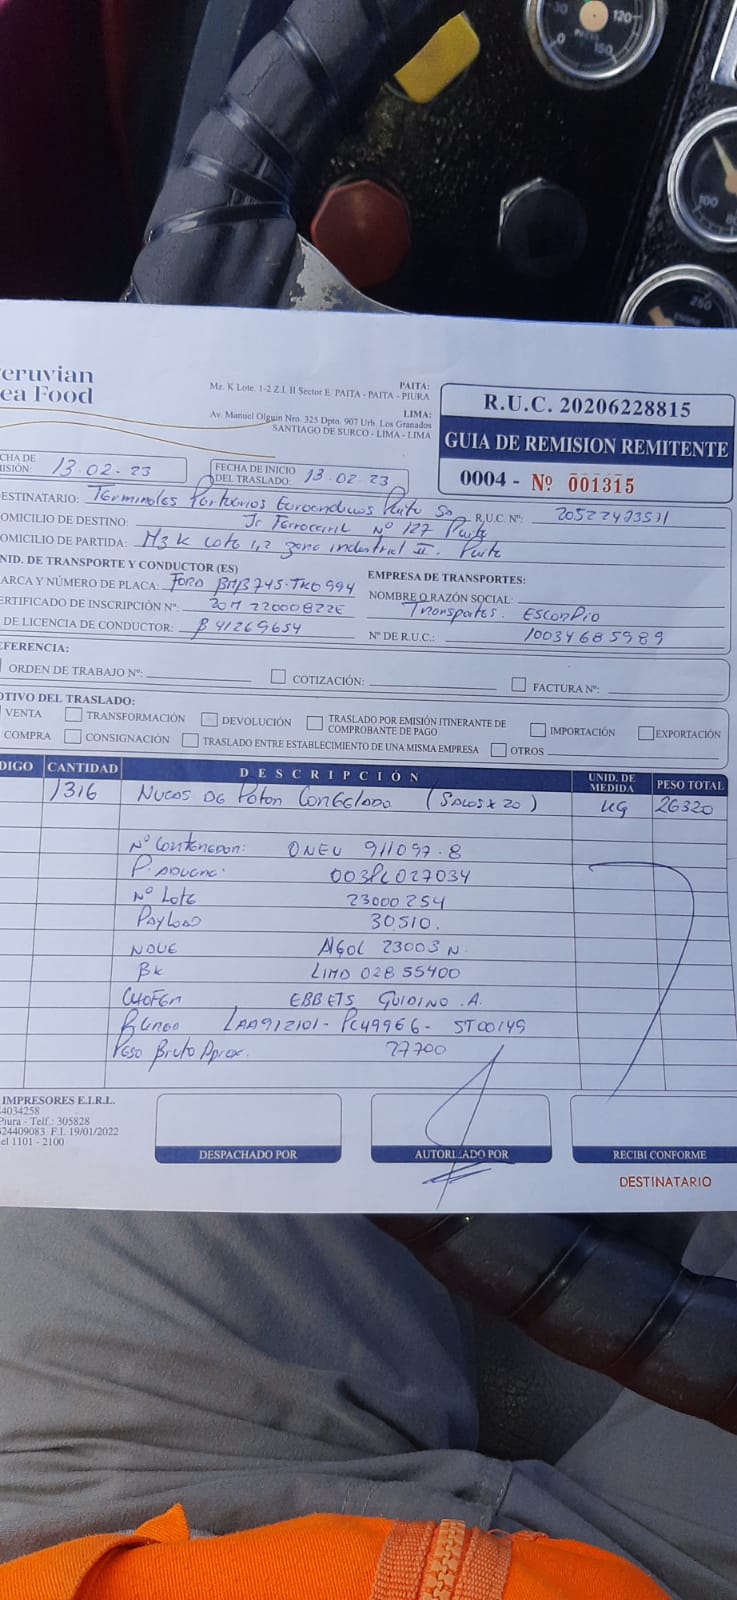 eruvian
ea Food
PAITA:
Mz. K Lote. 1-2 Z.I. II Sector E PAITA - PAITA - PIURA
LIMA:
Av. Manuel Olguin Nro. 325 Dpto. 907 Urb. Los Granados
SANTIAGO DE SURCO - LIMA - LIMA
R.U.C. 20206228815
GUIA DE REMISION REMITENTE
0004 - Nº 001315
CHA DE
ISIÓN: 13-02-23
FECHA DE INICIO
DEL TRASLADO: 13.02.23
ESTINATARIO: Terminales Portuarios Euroandinos Paita Sa R.U.C. Nº: 20522473571
OMICILIO DE DESTINO: Jr Ferrocarril Nº 127 Paita
OMICILIO DE PARTIDA: Mz K Lote 1,2 zona industrial II. Paita
NID. DE TRANSPORTE Y CONDUCTOR (ES)
ARCA Y NÚMERO DE PLACA: FORD BMB745-TKO994
ERTIFICADO DE INSCRIPCIÓN Nº: 20M 22000822E
DE LICENCIA DE CONDUCTOR: B41269654
EMPRESA DE TRANSPORTES:
NOMBRE O RAZÓN SOCIAL:
Transportes. EsconPio
Nº DE R.U.C.: 10034685989
EFERENCIA:
ORDEN DE TRABAJO Nº:
COTIZACIÓN:
FACTURA Nº:
OTIVO DEL TRASLADO:
VENTA TRANSFORMACIÓN DEVOLUCIÓN TRASLADO POR EMISIÓN ITINERANTE DE COMPROBANTE DE PAGO IMPORTACIÓN EXPORTACIÓN
COMPRA CONSIGNACIÓN TRASLADO ENTRE ESTABLECIMIENTO DE UNA MISMA EMPRESA OTROS
DIGO CANTIDAD DESCRIPCIÓN UNID. DE MEDIDA PESO TOTAL
1316 Nucas de Poton Congelado (Sacos x 20) KG 26320
Nº Contenedor: ONEU 911097-8
P. Aduana: 003PL027034
Nº Lote 23000254
Payload 30,510.
NAVE ALGOL 23003 N
Bk LIMD 02855400
Chofer EBBETS GUIDINO .A.
LAA912101- PC49966- ST00149
Peso Bruto Aprox. 27700
IMPRESORES E.I.R.L.
4034258
Piura - Telf.: 305828
24409083 F.I. 19/01/2022
el 1101 - 2100
DESPACHADO POR
AUTORIZADO POR
RECIBI CONFORME
DESTINATARIO
30
120
0
150
100
250